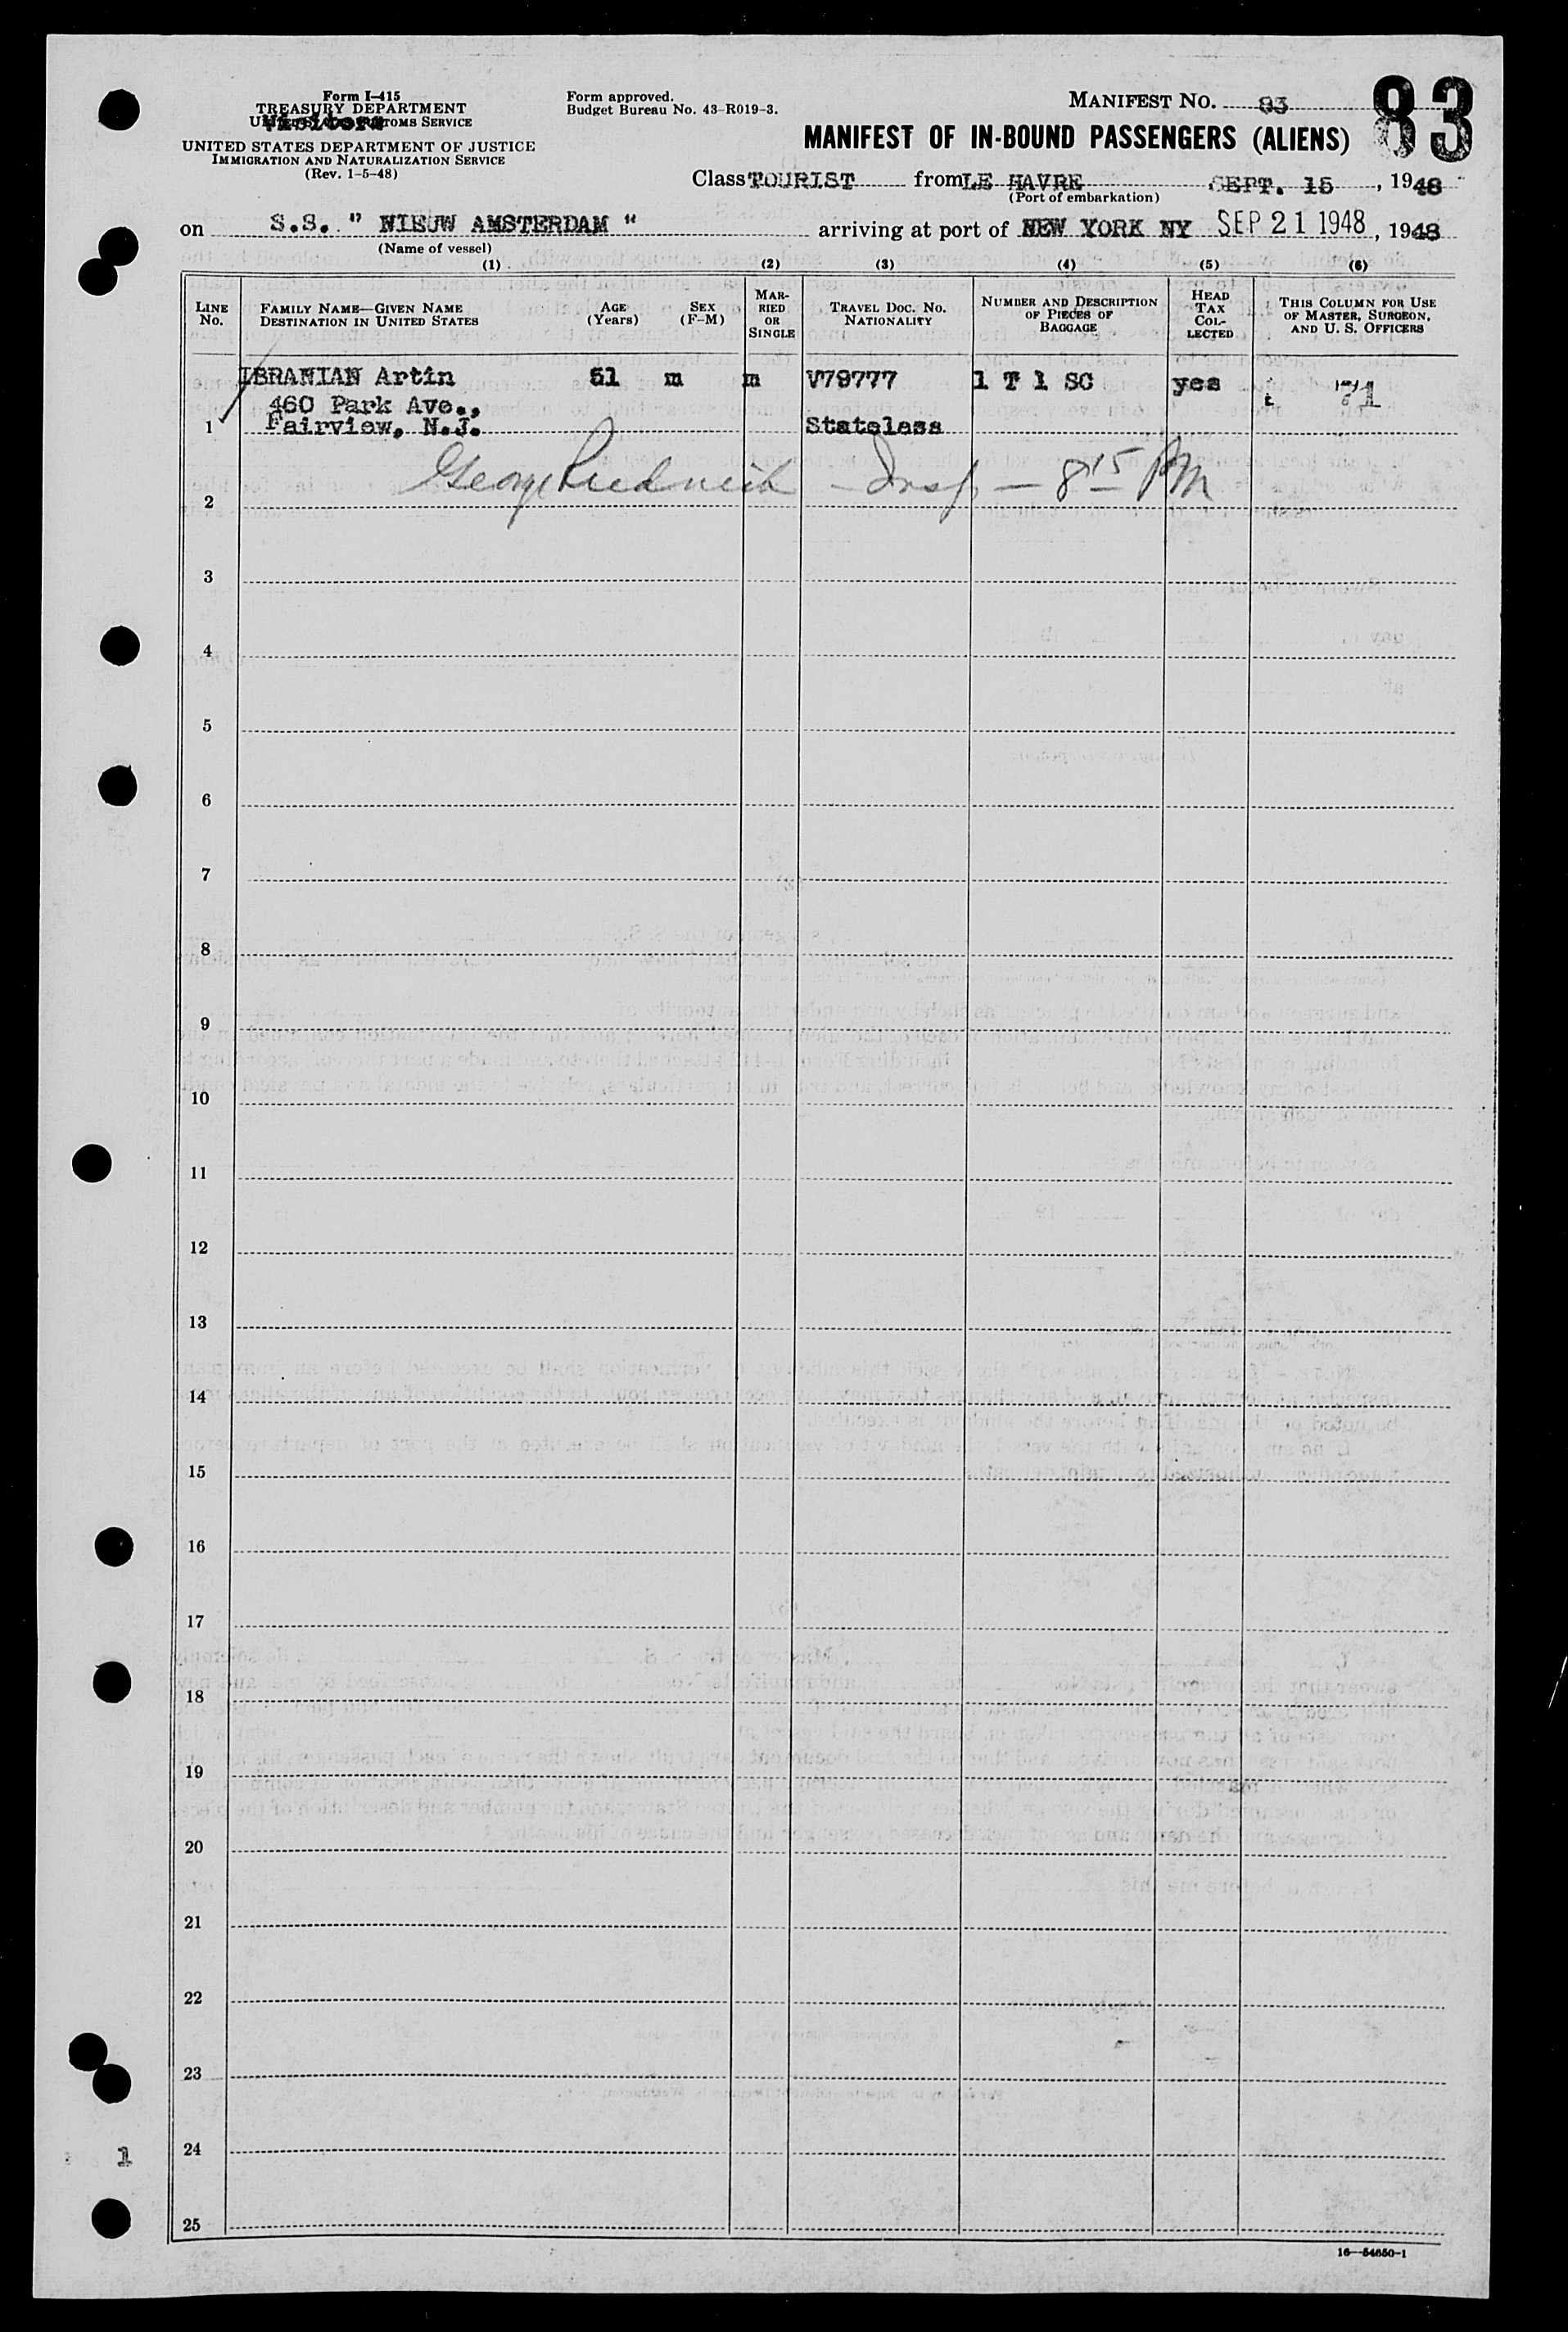 Form I-415
TREASURY DEPARTMENT
UNITED STATES CUSTOMS SERVICE
Visitors
UNITED STATES DEPARTMENT OF JUSTICE
IMMIGRATION AND NATURALIZATION SERVICE
(Rev. 1-5-48)
Form approved.
Budget Bureau No. 43-R019-3.
MANIFEST NO. 83
83
MANIFEST OF IN-BOUND PASSENGERS (ALIENS)
Class TOURIST from LE HAVRE SEPT. 15, 1948
(Port of embarkation)
on S.S. " NIEUW AMSTERDAM " arriving at port of NEW YORK NY SEP 21 1948, 1948
(Name of vessel)
(1) (2) (3) (4) (5) (6)
LINE NO.
FAMILY NAME—GIVEN NAME
DESTINATION IN UNITED STATES
AGE (Years)
SEX (F-M)
MARRIED OR SINGLE
TRAVEL DOC. NO.
NATIONALITY
NUMBER AND DESCRIPTION OF PIECES OF BAGGAGE
HEAD TAX COLLECTED
THIS COLUMN FOR USE OF MASTER, SURGEON, AND U. S. OFFICERS
IBRANIAN Artin 51 m m V79777 1 T 1 SC yes
460 Park Ave.,
1 Fairview, N.J. Stateless
2 George — Insp — 8 15 PM
3
4
5
6
7
8
9
10
11
12
13
14
15
16
17
18
19
20
21
22
23
24
1
25
16—54650-1